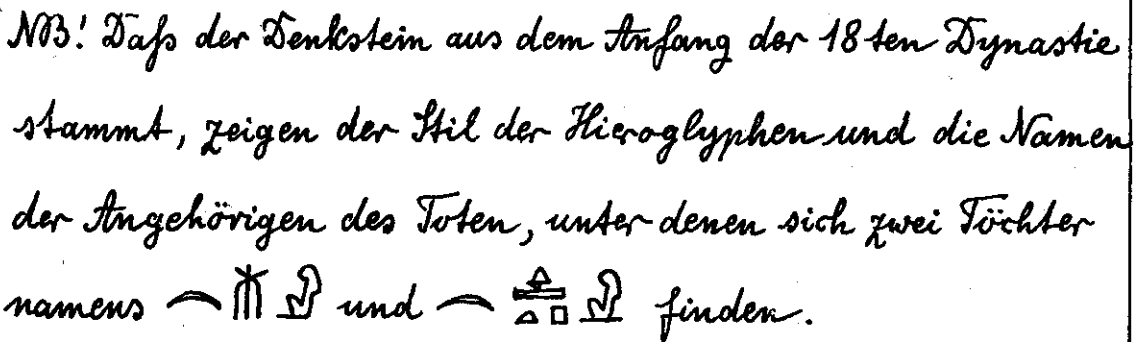 NB! Daß der Denkstein aus dem Anfang der 18ten Dynastie
stammt, zeigen der Stil der Hieroglyphen und die Namen
der Angehörigen des Toten, unter denen sich zwei Töchter
namens 𓇹𓄟𓁐 und 𓇹𓊵𓏏𓊪𓁐 finden.